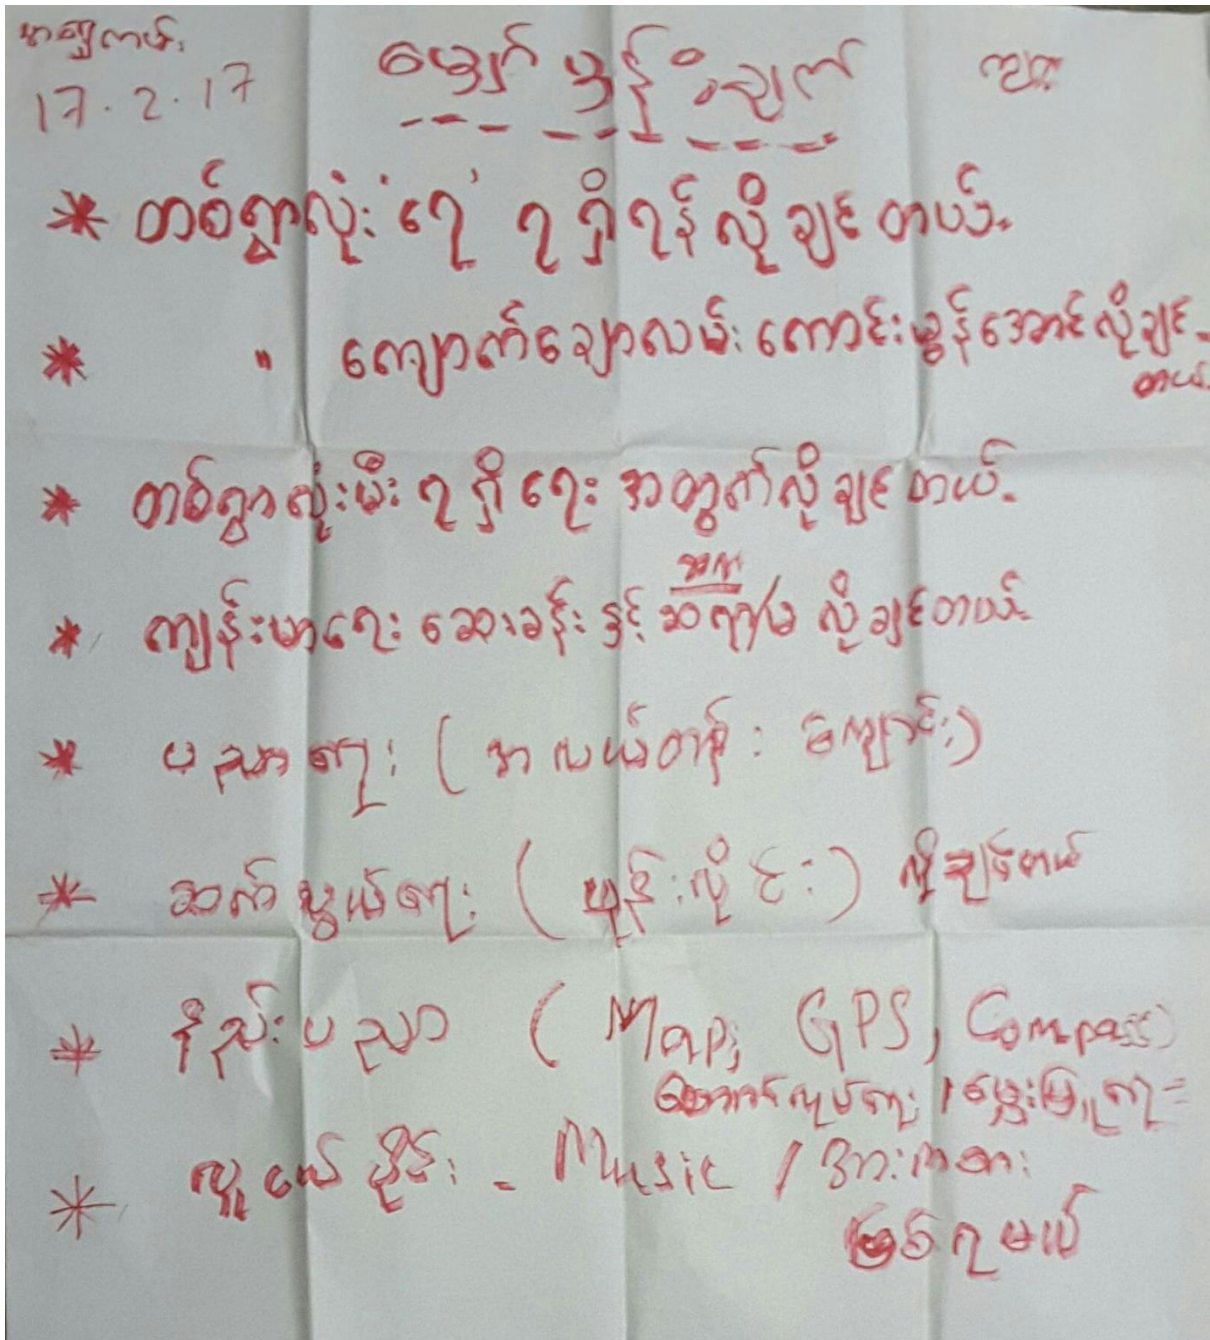 17.2.17
မျှော်မှန်းချက်
* တစ်ရွာလုံး ရေ ရရှိရန် လိုချင်တယ်.
* " ကျောက်ချောလမ်းကောင်းမွန်အောင်လိုချင်
တယ်.
* တစ်ရွာလုံးမီးရရှိရေးအတွက်လိုချင်တယ်.
* ကျန်းမာရေး ဆေးခန်း နှင့် ဆရာ/မ လိုချင်တယ်
* ပညာရေး (အလယ်တန်း ကျောင်း)
* ဆက်သွယ်ရေး (ဖုန်းလိုင်း) လိုချင်တယ်
* နည်းပညာ (Map, GPS, Compass)
မွေးမြူရေး
* လူငယ်ပိုင်း - Music / အားကစား
ဖြစ်ရမယ်